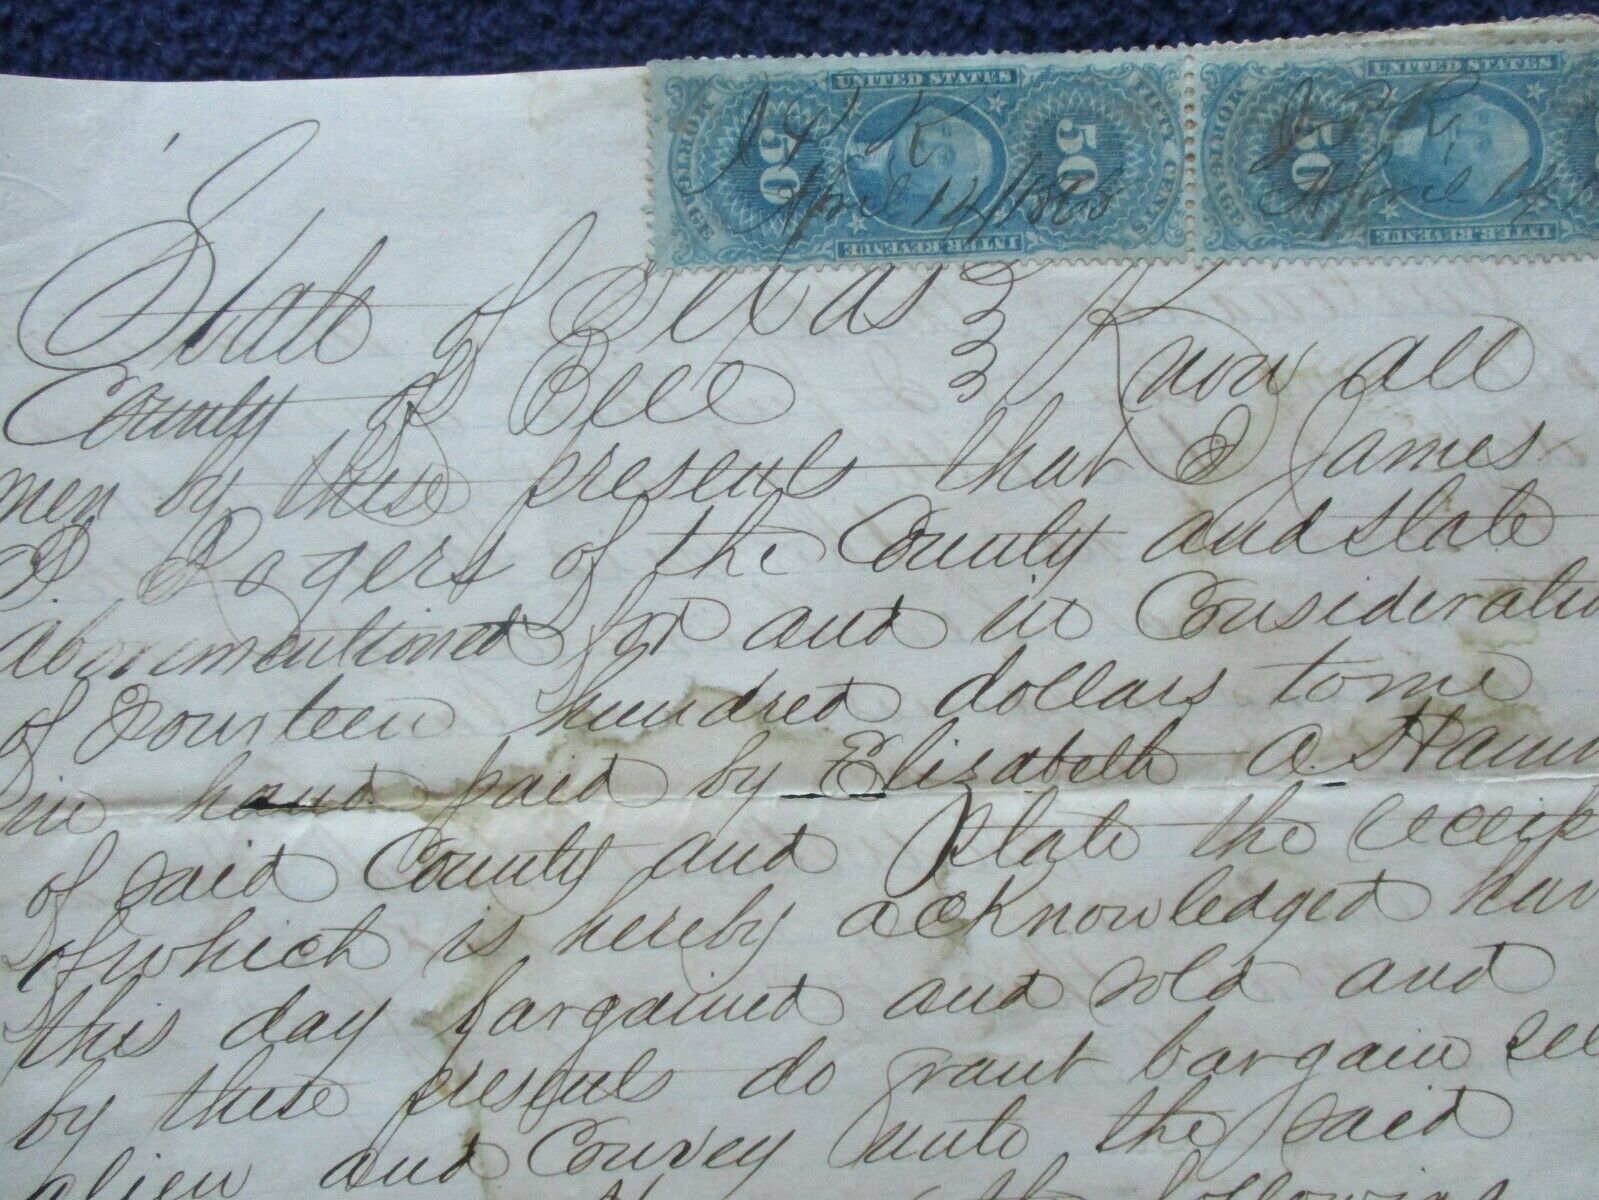 UNITED STATES
MORTGAGE
50
50
FIFTY CENTS
INTER. REVENUE
K
April 14 1868
UNITED STATES
MORTGAGE
50
INTER. REVENUE
J P R
April 14
State of Texas
County of Bell
Know all
men by these presents that I James
P. Rogers of the County and State
abovementioned for and in Consideratio
of Fourteen hundred dollars to me
in hand paid by Elizabeth A.
of said County and State the receip
of which is hereby acknowledged hav
this day bargained and sold and
by these presents do grant bargain sel
alien and Convey unto the said
the following